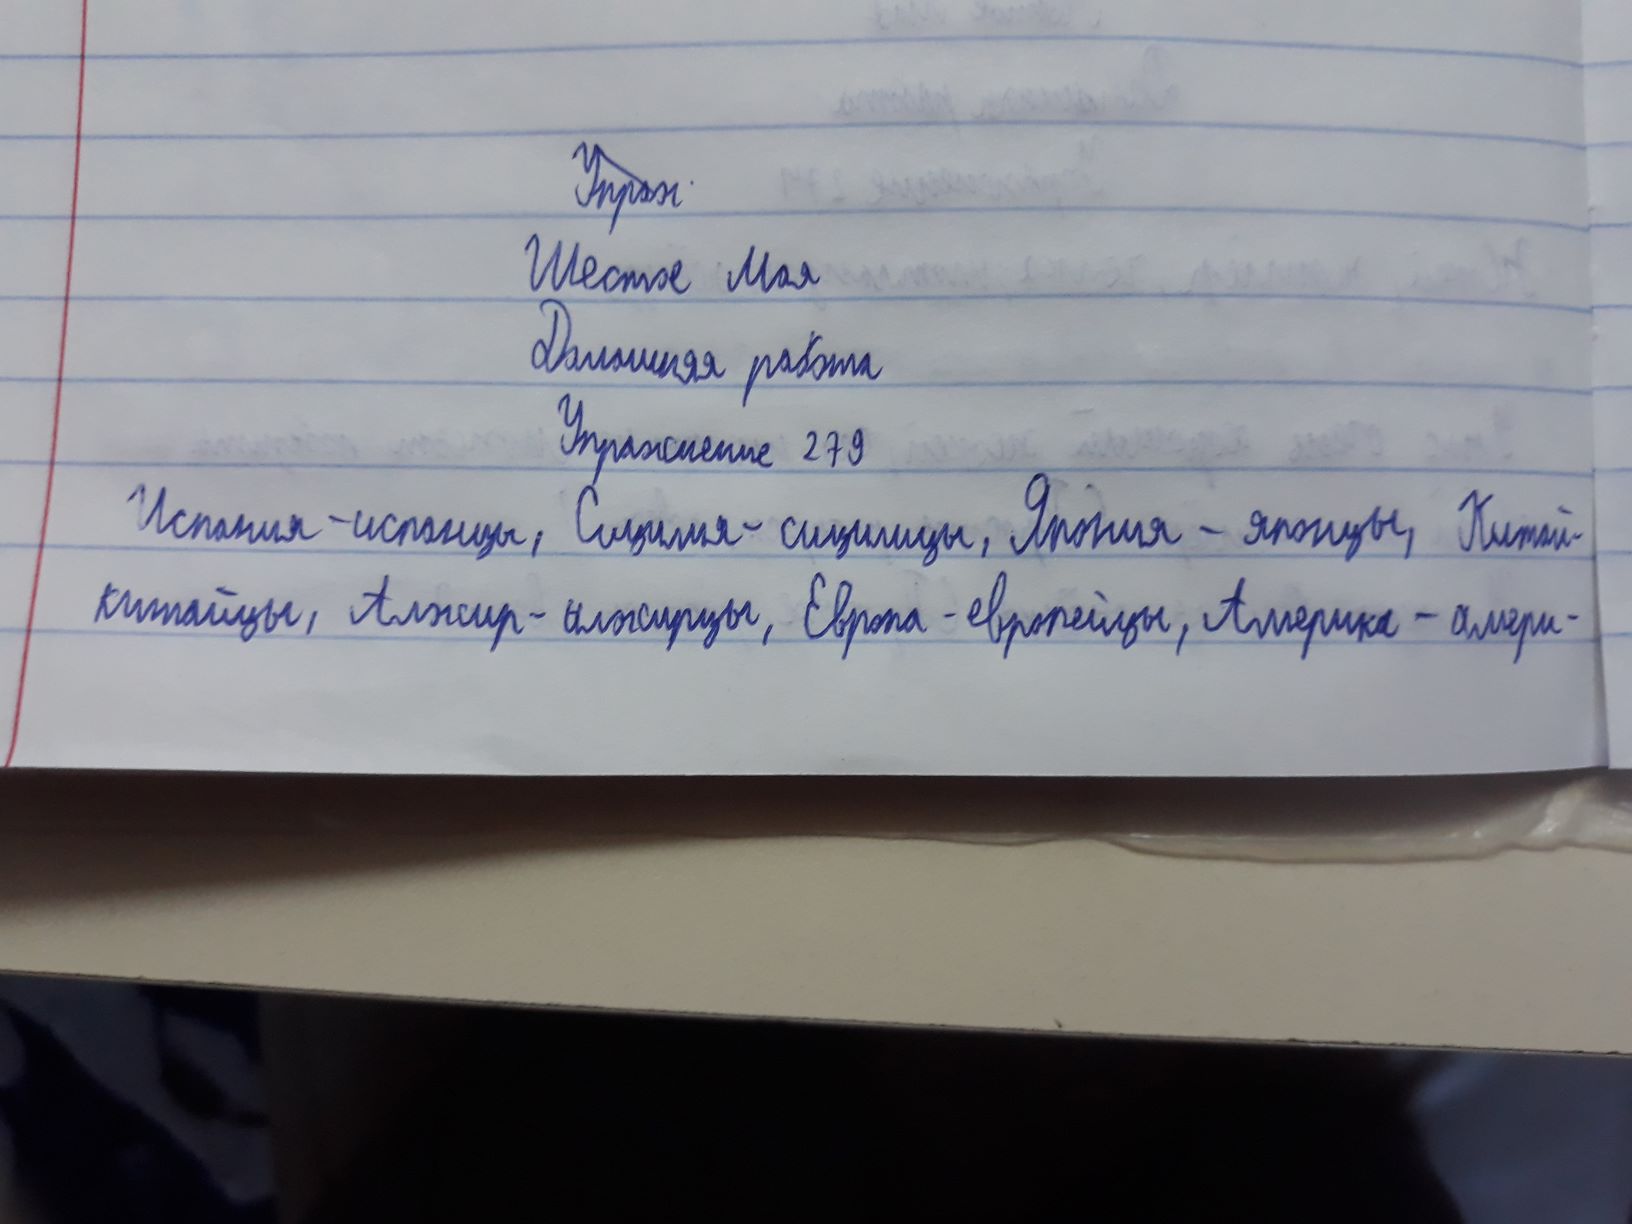 Упраж.
Шестое Мая
Домашняя работа
Упражнение 279
Испания - испанцы, Сицилия - сицилицы, Япония - японцы, Китай-
китайцы, Алжир - алжирцы, Европа - европейцы, Америка - амери-